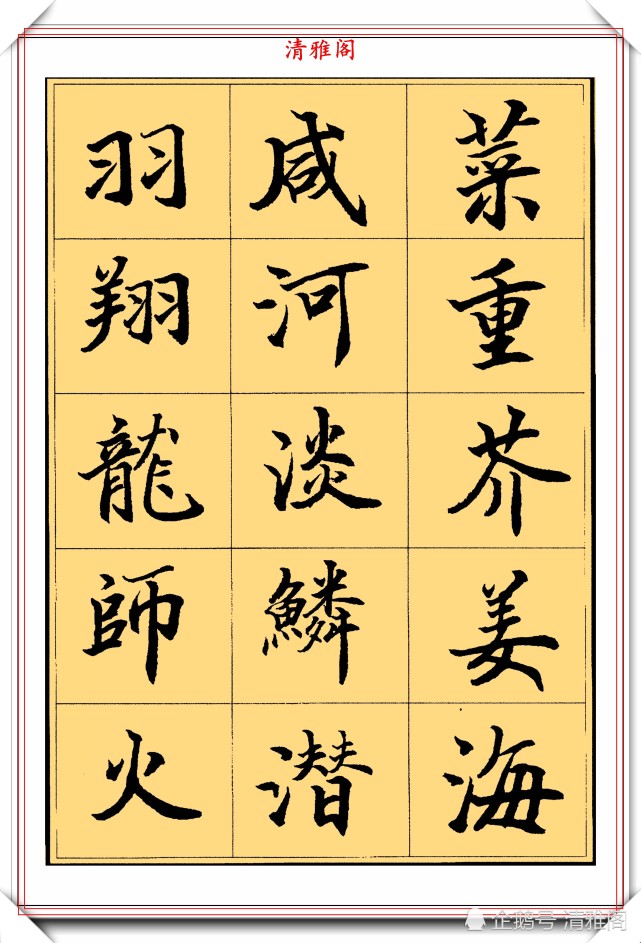 清雅阁
菜重芥姜海
咸河淡鱗潜
羽翔龍師火
企鹅号 清雅阁